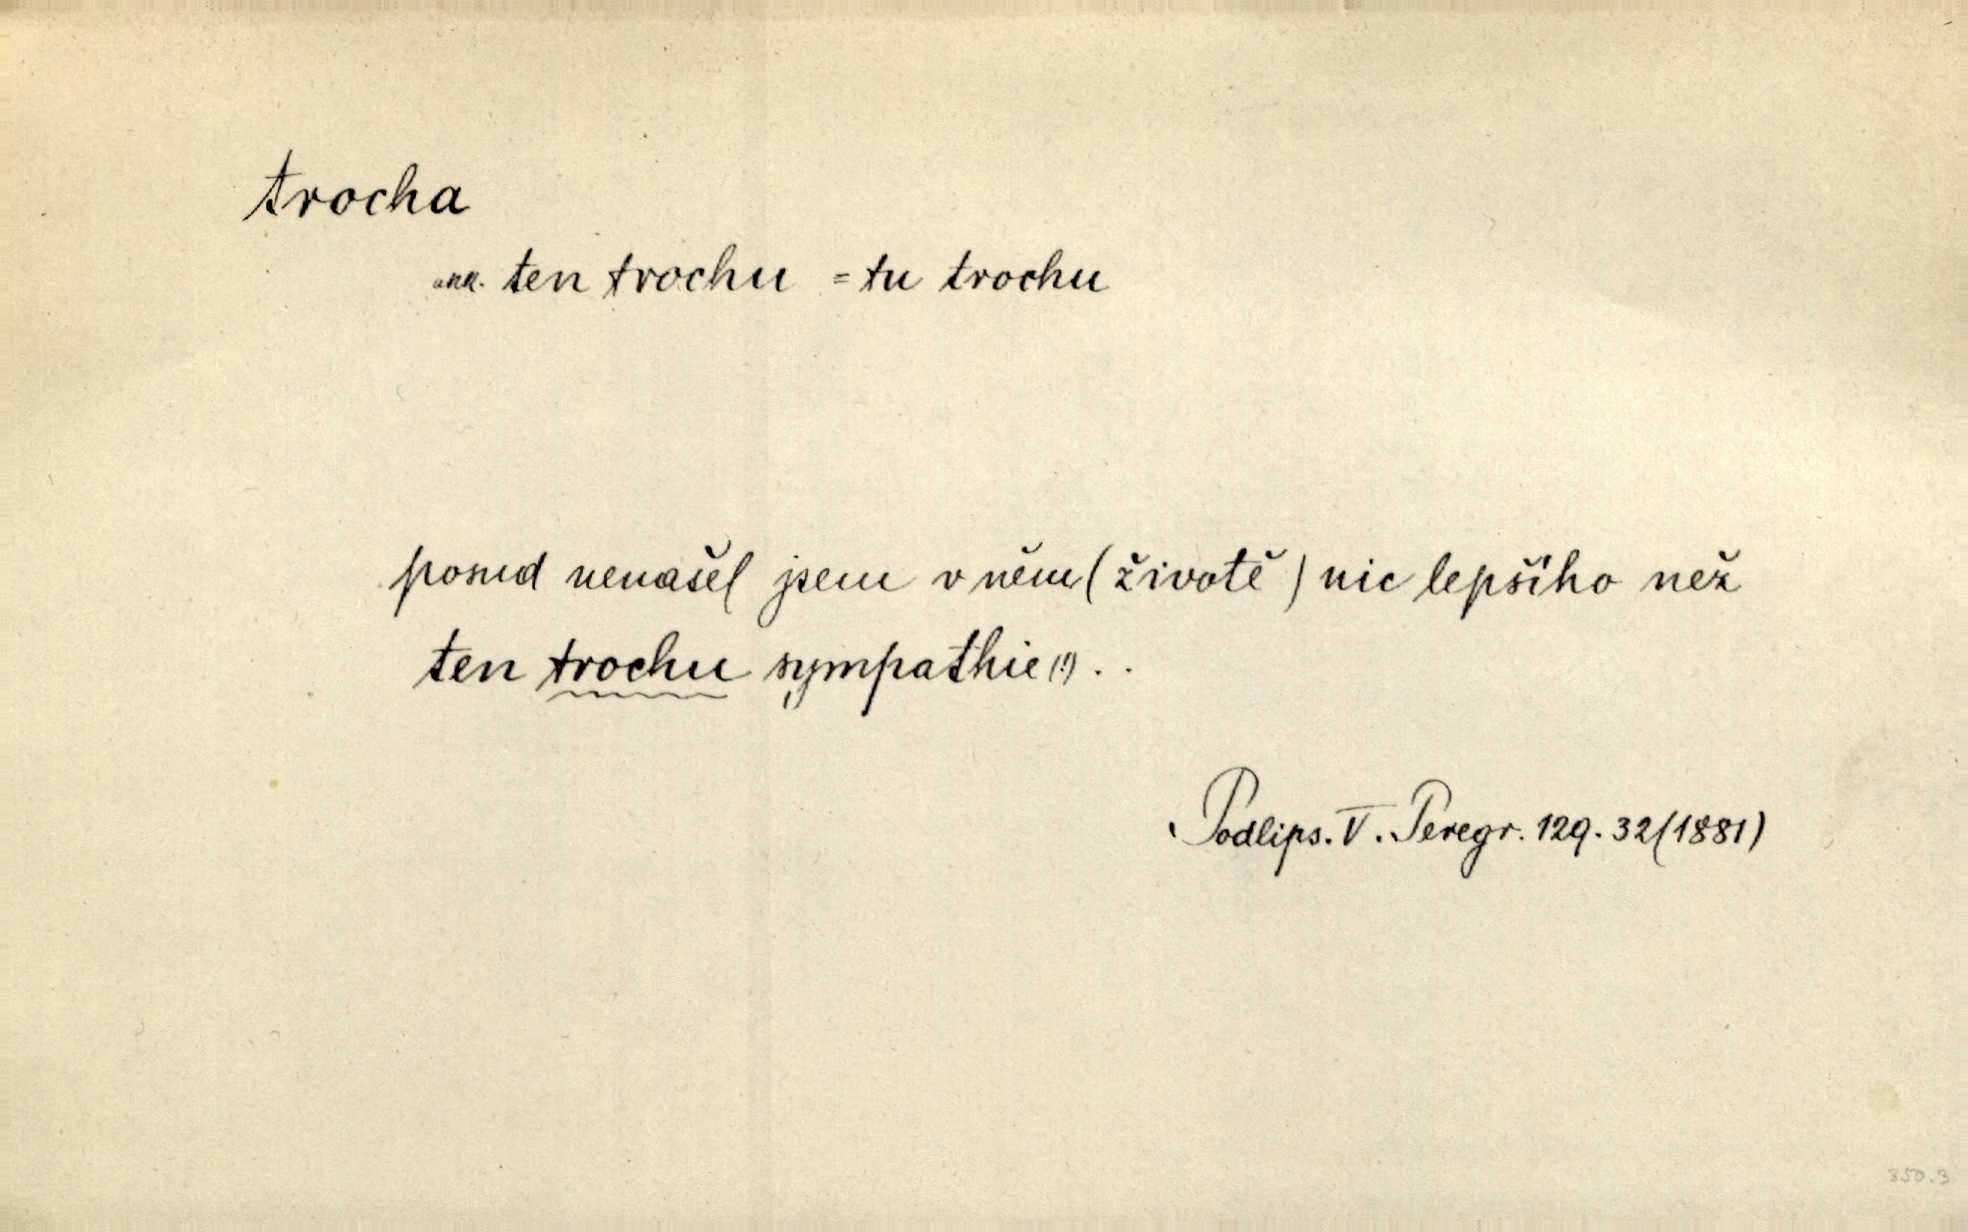 trocha
akk. ten trochu = tu trochu
posud nenašel jsem v něm (životě) nic lepšího než
ten trochu sympathie (!) . .
Podlips. V. Peregr. 129. 32 (1881)
350.3